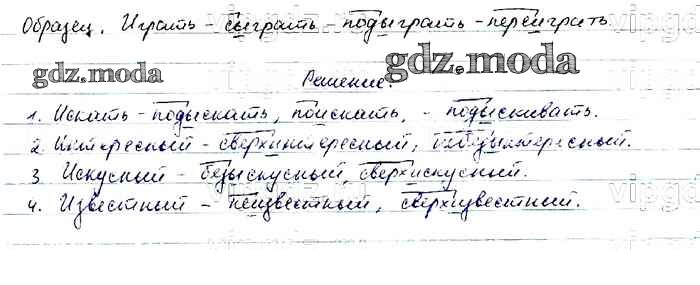 Образец. Играть - сыграть - подыграть - переиграть.
gdz.moda
gdz.moda
Решение.
1. Искать - подыскать, поискать, - подыскивать.
2. Интересный - сверхинтересный, небезынтересный.
3. Искусный - безыскусный, сверхискусный.
4. Известный - неизвестный, сверхизвестный.